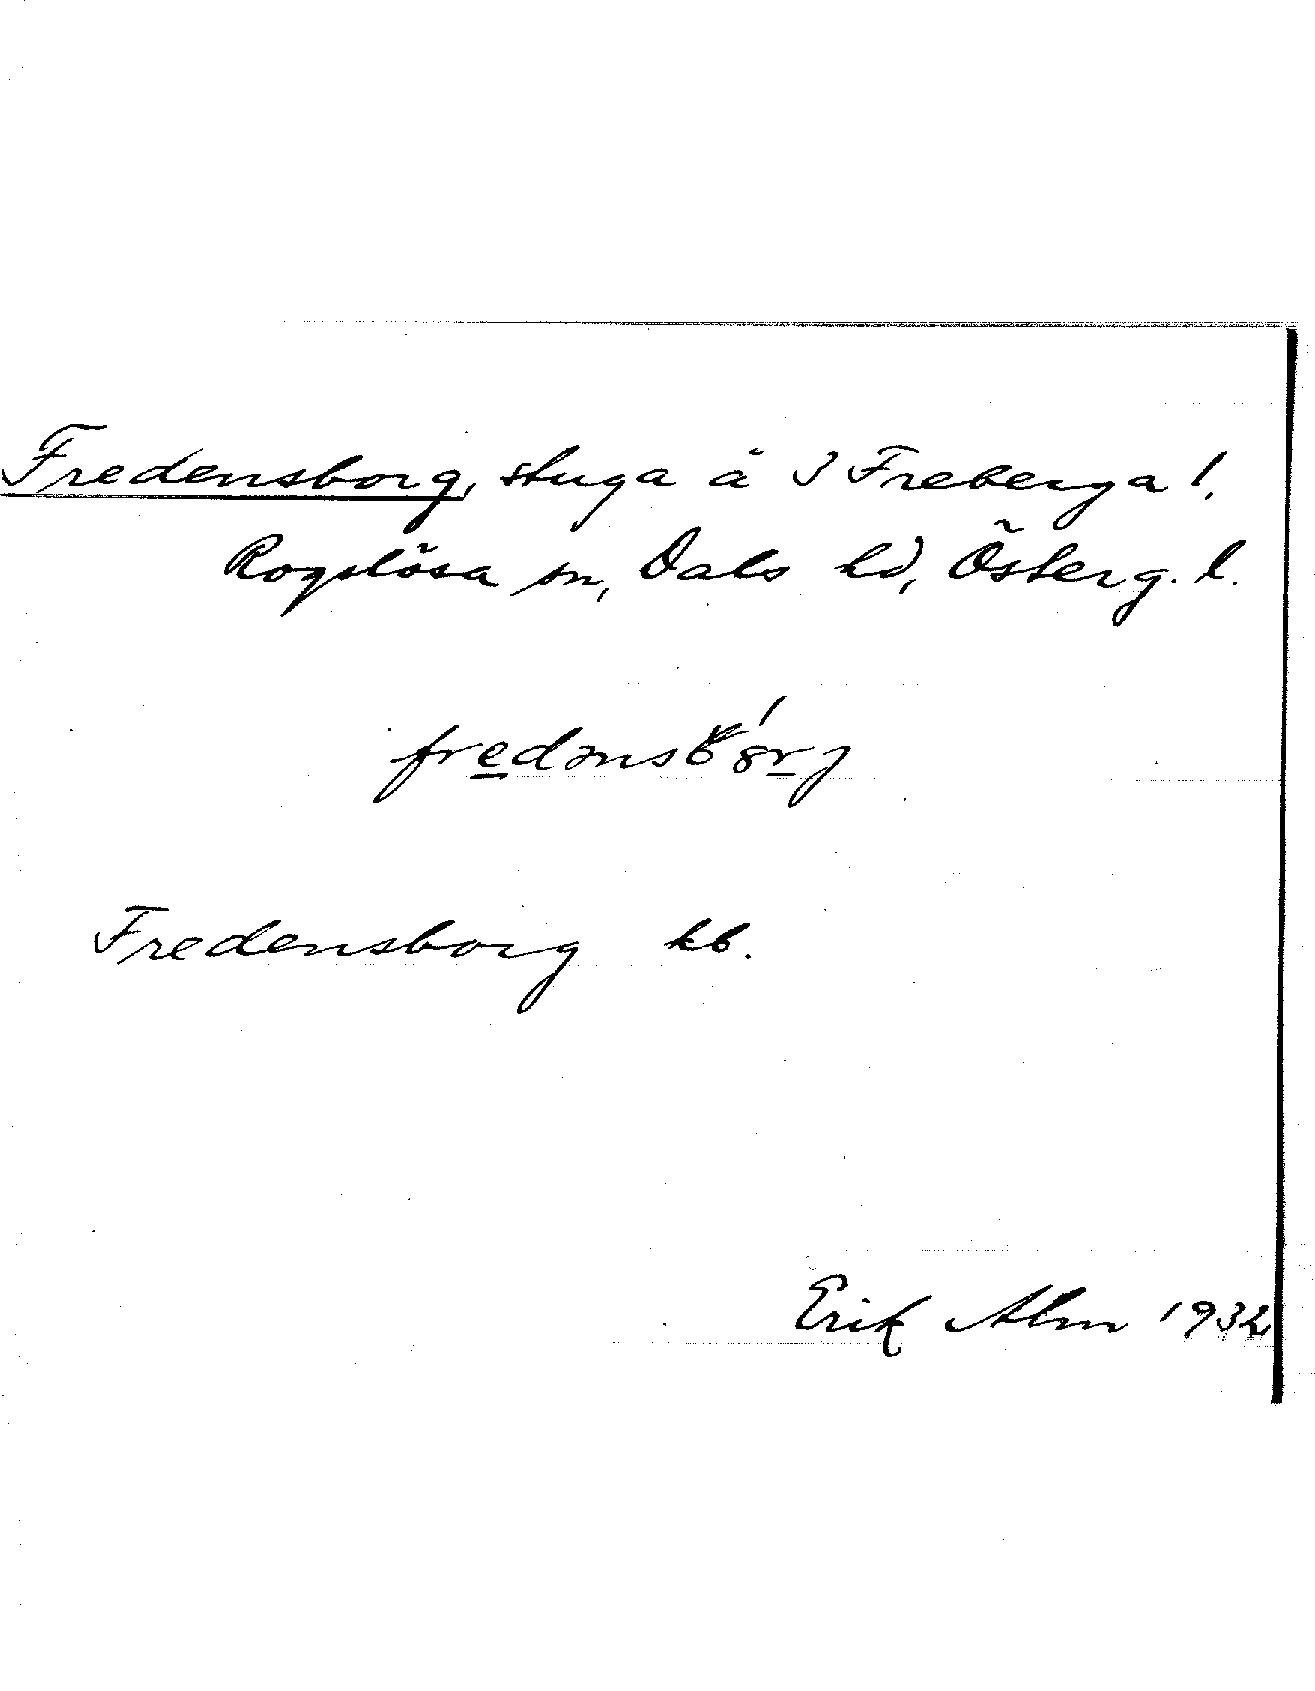 Fredensborg, stuga å 3 Freberga l.
Rogslösa sn, Dals hd, Österg. l.
fredənsbȣrj
Fredensborg kb.
Erik Alm 1932